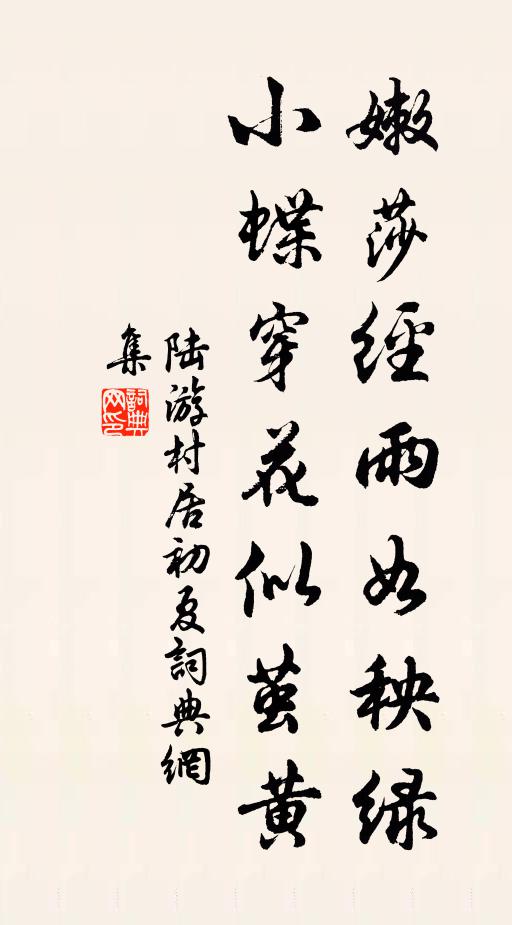 嫩莎經雨如秧綠
小蝶穿花似茧黄
陆游村居初夏詞典網
集
詞典
网印